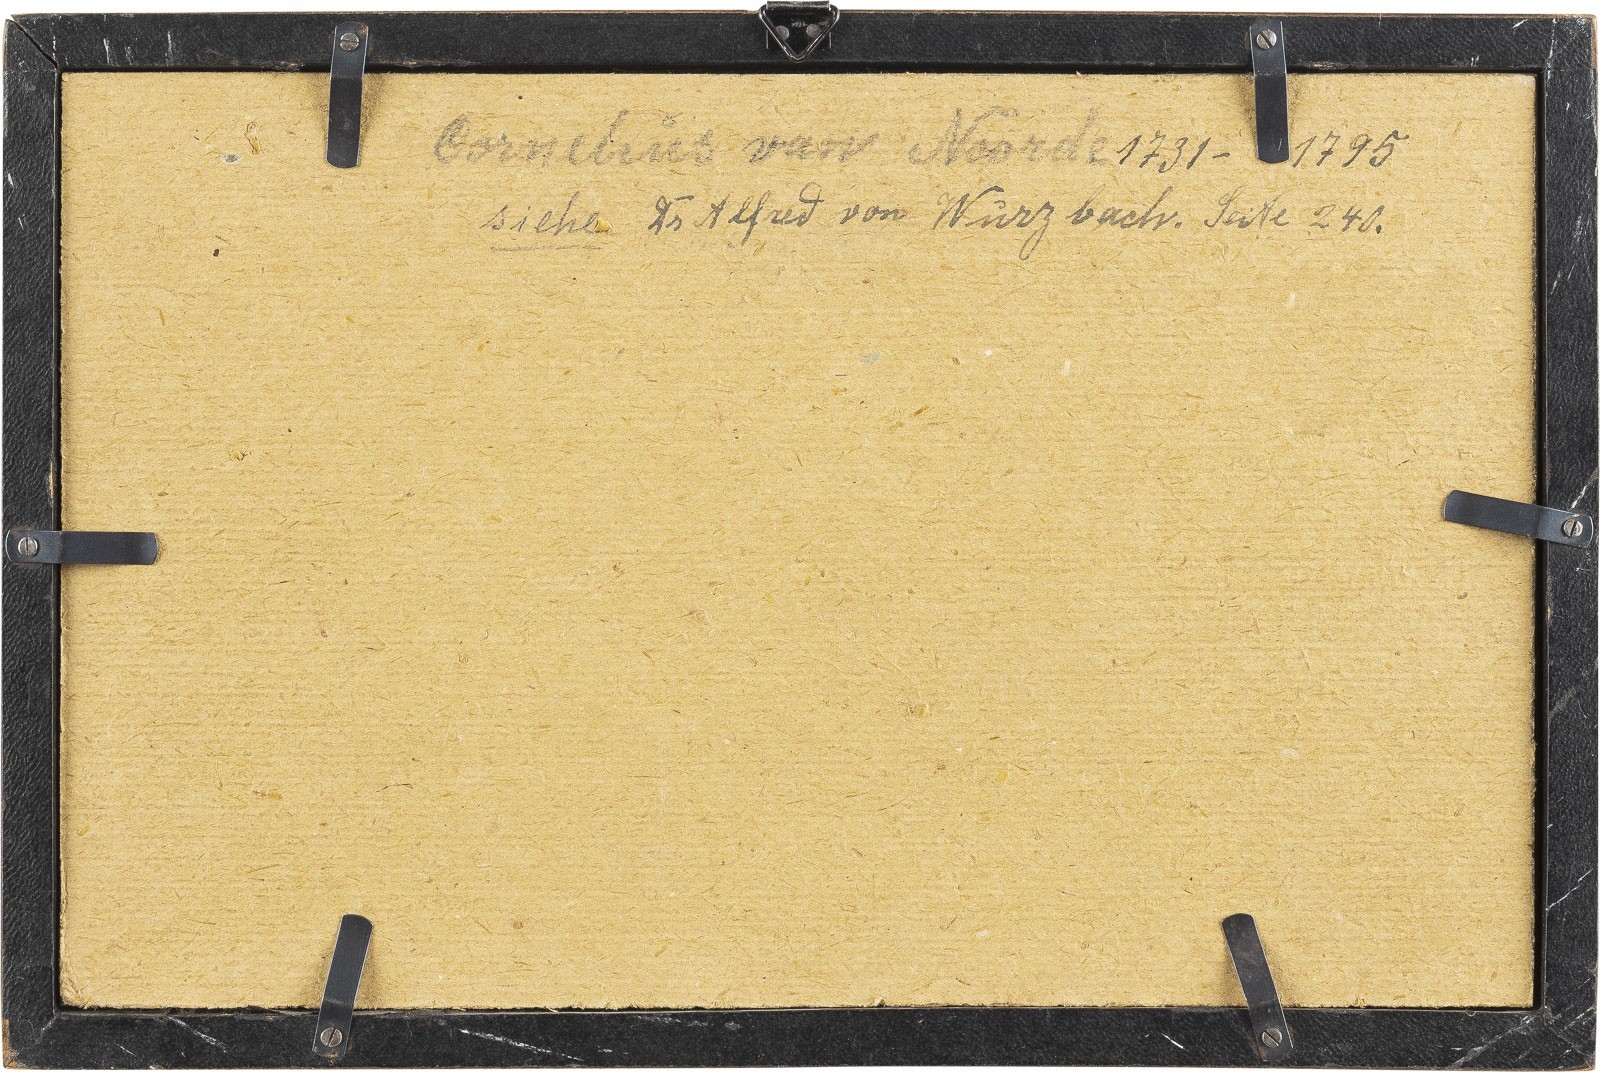 Cornelius van Noorde 1731- 1795
siehe Dr Alfred von Wurzbach. Seite 240.